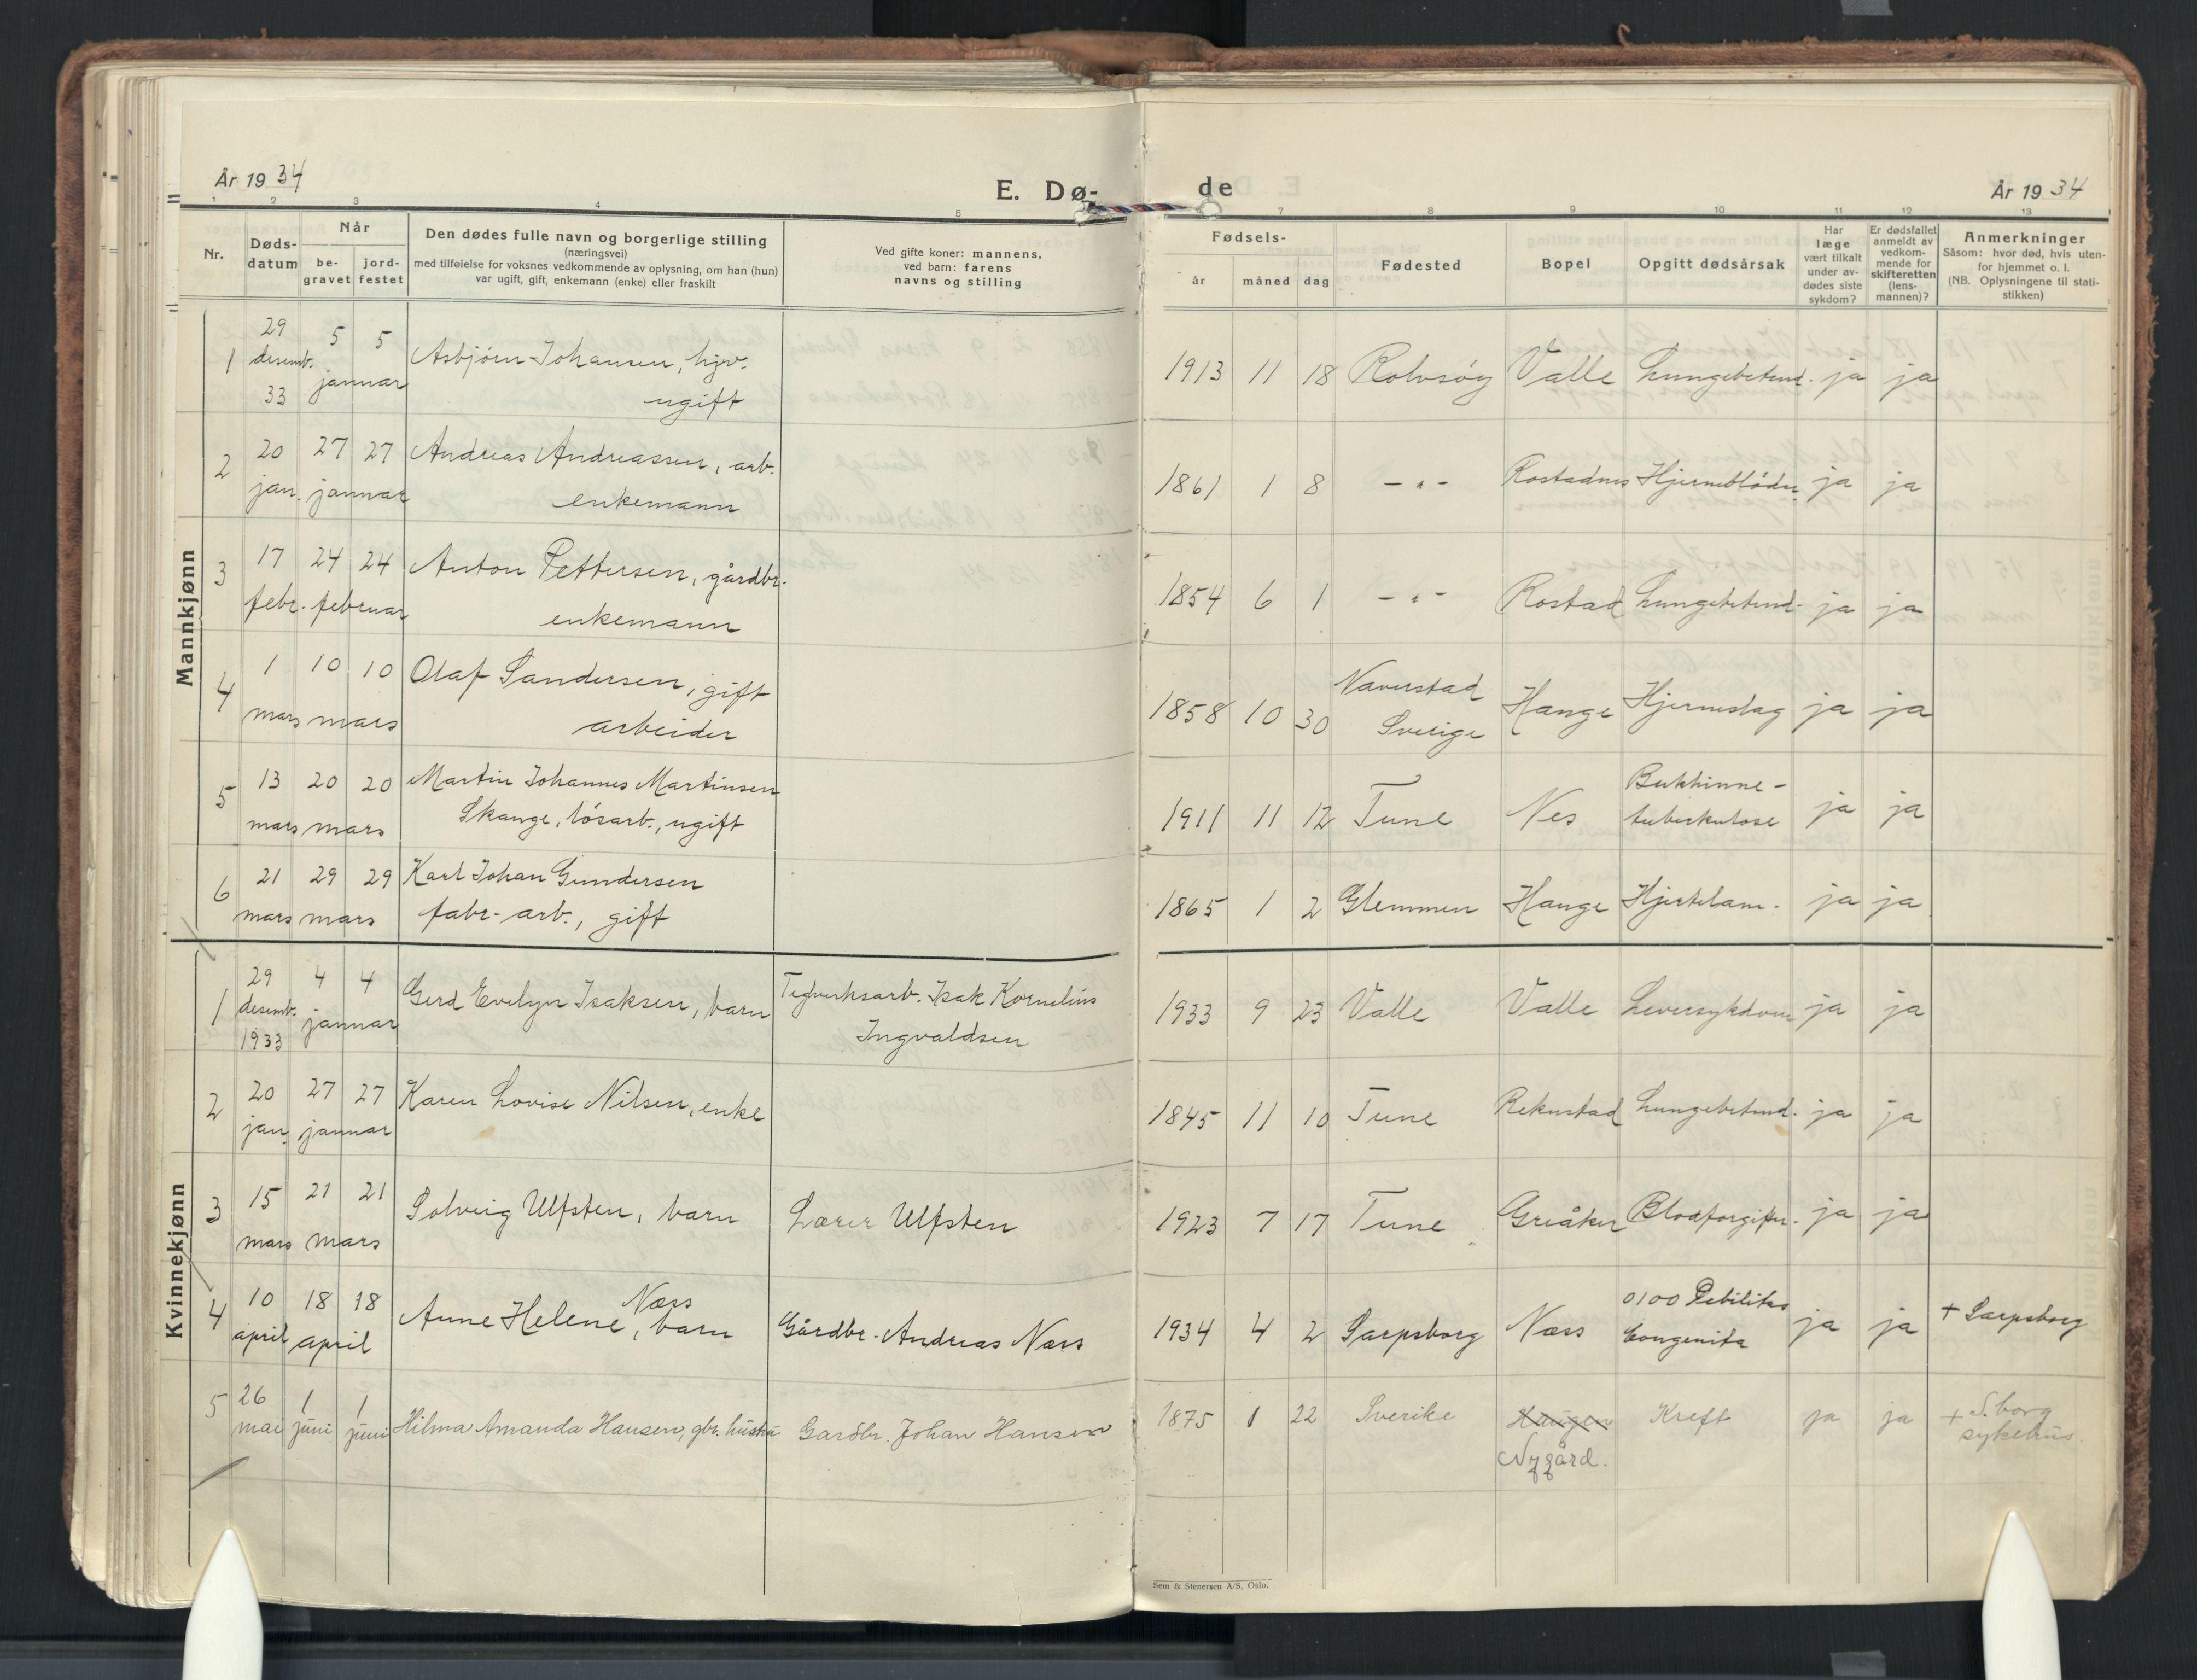 År 1934
E. Dø-
de
År 1934
1 2 3 4 5
7 8 9 10 11 12 13
Nr.
Døds-
datum
Når
be-
gravet
jord-
festet
Den dødes fulle navn og borgerlige stilling
(næringsvei)
med tilføielse for voksnes vedkommende av oplysning, om han (hun)
var ugift, gift, enkemann (enke) eller fraskilt
Ved gifte koner: mannens,
ved barn: farens
navns og stilling
Fødsels-
år måned dag
Fødested
Bopel
Opgitt dødsårsak
Har
læge
vært tilkalt
under av-
dødes siste
sykdom?
Er dødsfallet
anmeldt av
vedkom-
mende for
skifteretten
(lens-
mannen)?
Anmerkninger
Såsom: hvor død, hvis uten-
for hjemmet o. l.
(NB. Oplysningene til stati-
stikken)
Mannkjønn
1 29 desemb. 33 5 5 januar Asbjörn Johansen, hjv.
ugift
1913 11 18 Rolvsöy Valle Lungebetend. ja ja
2 20 jan. 27 27 januar Andreas Andreassen, arb.
enkemann
1861 1 8 -"- Rostadnes Hjerneblödn. ja ja
3 17 febr. 24 24 februar Anton Pettersen, gårdbr.
enkemann
1854 6 1 -"- Rostad Lungebetend. ja ja
4 1 mars 10 10 mars Olaf Sandersen, gift
arbeider
1858 10 30 Naverstad
Sverige
Hauge Hjerneslag ja ja
5 13 mars 20 20 mars Martin Johannes Martinsen
Skauge, lösarb., ugift
1911 11 12 Tune Nes Bukhinne-
tuberkulose
ja ja
6 21 mars 29 29 mars Karl Johan Gundersen
fabr.-arb., gift
1865 1 2 Glemmen Hauge Hjertelam. ja ja
Kvinnekjønn
1 29 desemb. 1933 4 4 januar Gerd Evelyn Isaksen, barn
Teglverksarb. Isak Kornelius
Ingvaldsen
1933 9 23 Valle Valle Leversykdom ja ja
2 20 jan. 27 27 januar Karen Lovise Nilsen, enke
1845 11 10 Tune Rekustad Lungebetend. ja ja
3 15 mars 21 21 mars Solveig Ulfsten, barn
Lærer Ulfsten
1923 7 17 Tune Greåker Blodforgiftn. ja ja
4 10 april 18 18 april Anne Helene Næss, barn
Gårdbr. Andreas Næss
1934 4 2 Sarpsborg Næss 0100 Debilitas
Congenita
ja ja + Sarpsborg
5 26 mai 1 juni 1 juni Hilma Amanda Hansen, gbr. hustru
Gardbr. Johan Hansen
1875 1 22 Sverike Haugen
Nygård.
Kreft ja ja + S.borg
sykehus.
Sem & Stenersen A/S, Oslo.